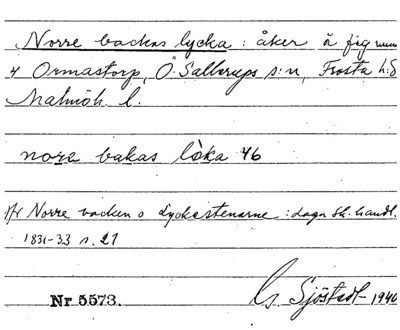 Norre backens lycka: åker å fig num
4 Ormastorp, Ö. Sallerups s:n, Frosta h:d
Malmöh. l.
nore bakas lòka 46
Hr Norre backen o Lyckestenarne: laga sk. handl.
1831-33 s. 21
Nr 5573.
G. Sjöstedt 1946